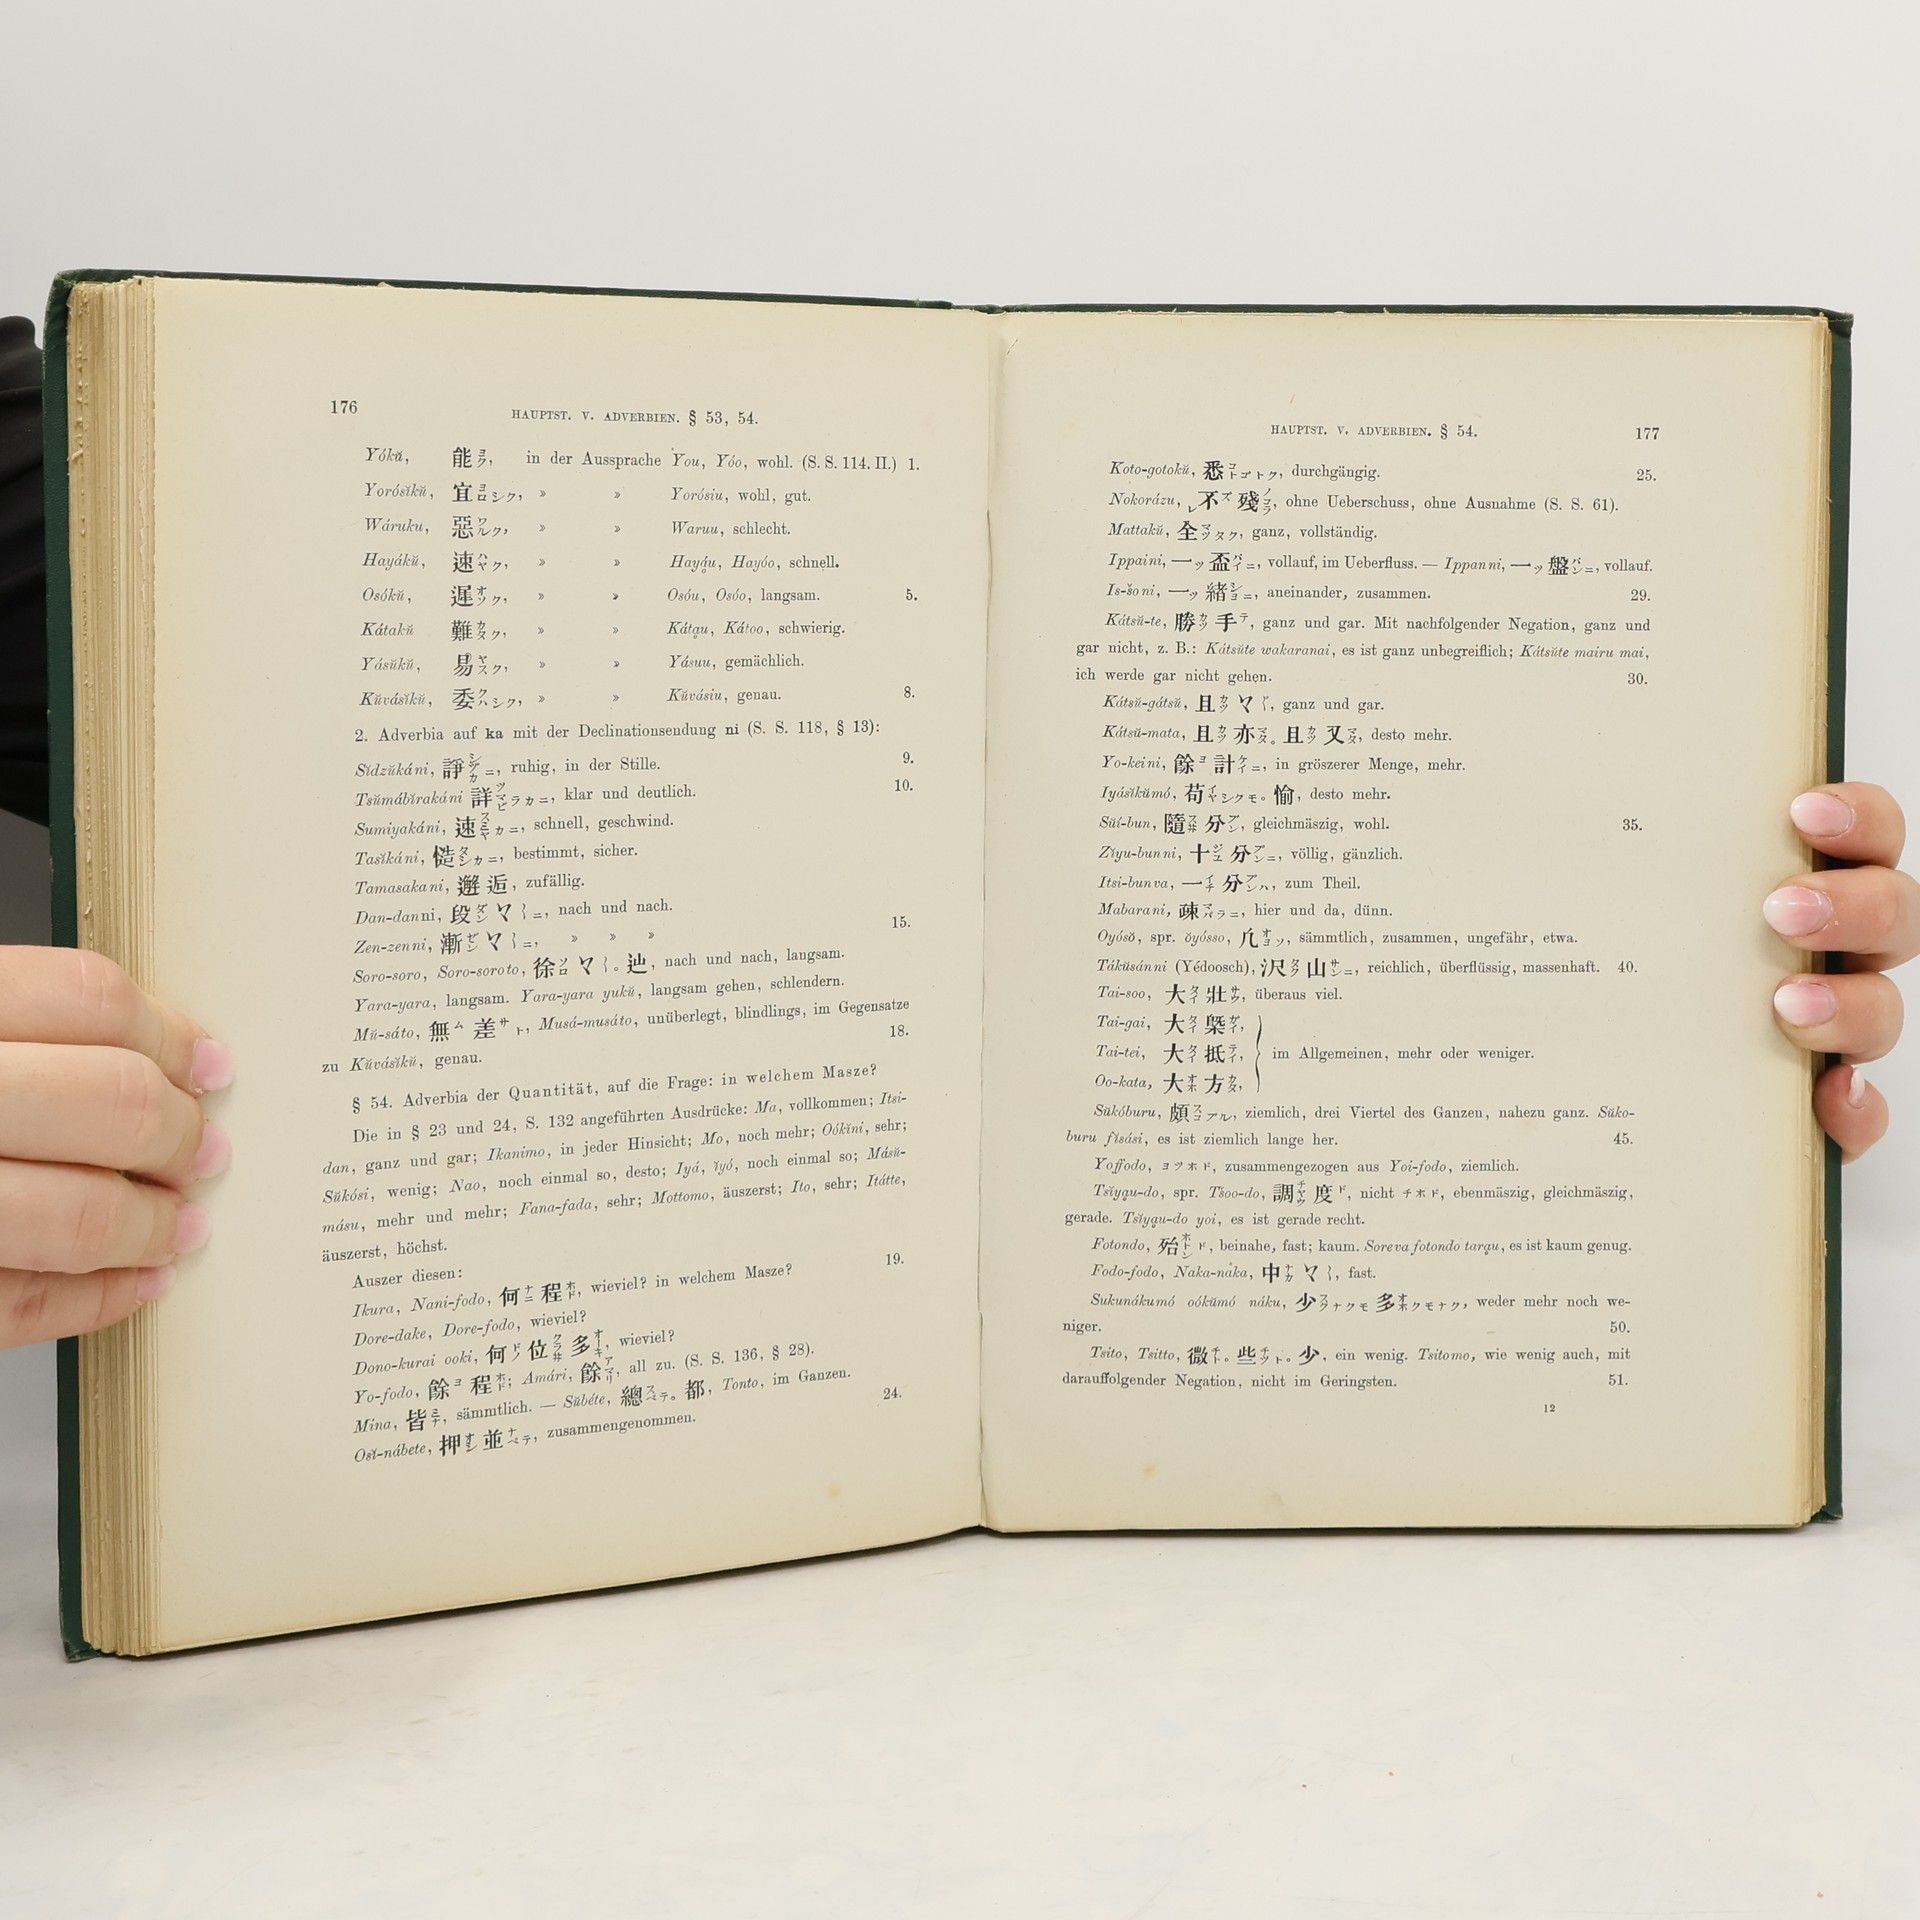 176
HAUPTST. V. ADVERBIEN. § 53, 54.
Yókŭ, 能ヨク, in der Aussprache You, Yóo, wohl. (S. S. 114. II.) 1.
Yorósĭkŭ, 宜ヨロシク, » » Yorósiu, wohl, gut.
Wáruku, 惡ワルク, » » Waruu, schlecht.
Hayákŭ, 速ハヤク, » » Hayḁ́u, Hayóo, schnell.
Osókŭ, 遲オソク, » » Osóu, Osóo, langsam. 5.
Kátakŭ 難カタク, » » Kátḁu, Kátoo, schwierig.
Yásŭkŭ, 易ヤスク, » » Yásuu, gemächlich.
Kŭvásĭkŭ, 委クハシク, » » Kŭvásiu, genau. 8.
2. Adverbia auf ka mit der Declinationsendung ni (S. S. 118, § 13):
Sĭdzŭkáni, 諍シヅカニ, ruhig, in der Stille. 9.
Tsŭmábĭrakáni 詳ツマビラカニ, klar und deutlich. 10.
Sumiyakáni, 速スミヤカニ, schnell, geschwind.
Tasĭkáni, 慥タシカニ, bestimmt, sicher.
Tamasakani, 邂逅, zufällig.
Dan-danni, 段ダン〻〳〵ニ, nach und nach.
Zen-zenni, 漸ゼン〻〳〵ニ, » » » 15.
Soro-soro, Soro-soroto, 徐ソロ〻〳〵。辿, nach und nach, langsam.
Yara-yara, langsam. Yara-yara yukŭ, langsam gehen, schlendern.
Mŭ-sáto, 無ム差サト, Musá-musáto, unüberlegt, blindlings, im Gegensatze
zu Kŭvásĭkŭ, genau. 18.
§ 54. Adverbia der Quantität, auf die Frage: in welchem Masze?
Die in § 23 und 24, S. 132 angeführten Ausdrücke: Ma, vollkommen; Itsi-
dan, ganz und gar; Ikanimo, in jeder Hinsicht; Mo, noch mehr; Oókĭni, sehr;
Sŭkósi, wenig; Nao, noch einmal so, desto; Iyá, ĭyó, noch einmal so; Másŭ-
másu, mehr und mehr; Fana-fada, sehr; Mottomo, äuszerst; Ito, sehr; Itátte,
äuszerst, höchst.
Auszer diesen:
Ikura, Nani-fodo, 何ナニ程ホド, wieviel? in welchem Masze? 19.
Dore-dake, Dore-fodo, wieviel?
Dono-kurai ooki, 何ドノ位クラヰ多オーキ, wieviel?
Yo-fodo, 餘ヨ程ホド; Amári, 餘アマリ, all zu. (S. S. 136, § 28).
Mina, 皆ミナ, sämmtlich. — Sŭbéte, 總スベテ。都, Tonto, im Ganzen. 24.
Osĭ-nábete, 押オシ並ナベテ, zusammengenommen.
HAUPTST. V. ADVERBIEN. § 54. 177
Koto-gotokŭ, 悉コトゴトク, durchgängig. 25.
Nokorázu, レ不ズ殘ノコラ, ohne Ueberschuss, ohne Ausnahme (S. S. 61).
Mattakŭ, 全マッタク, ganz, vollständig.
Ippaini, 一ッ盃パイニ, vollauf, im Ueberfluss. — Ippanni, 一ッ盤パンニ, vollauf.
Is-šoni, 一ッ緒ショニ, aneinander, zusammen. 29.
Kátsŭ-te, 勝カツ手テ, ganz und gar. Mit nachfolgender Negation, ganz und
gar nicht, z. B.: Kátsŭte wakaranai, es ist ganz unbegreiflich; Kátsŭte mairu mai,
ich werde gar nicht gehen. 30.
Kátsŭ-gátsŭ, 且カツ〻〳〵, ganz und gar.
Kátsŭ-mata, 且カツ亦マタ。且カツ又マタ, desto mehr.
Yo-keini, 餘ヨ計ケイニ, in gröszerer Menge, mehr.
Iyásĭkŭmó, 苟イヤシクモ。愉, desto mehr.
Sŭí-bun, 隨スヰ分ブン, gleichmäszig, wohl. 35.
Zĭyu-bunni, 十ジユ分ブンニ, völlig, gänzlich.
Itsi-bunva, 一イチ分ブンハ, zum Theil.
Mabarani, 疎マバラニ, hier und da, dünn.
Oyósŏ, spr. ŏyósso, 凢オヨソ, sämmtlich, zusammen, ungefähr, etwa.
Tákŭsánni (Yédoosch), 沢タク山サンニ, reichlich, überflüssig, massenhaft. 40.
Tai-soo, 大タイ壯サウ, überaus viel.
Tai-gai, 大タイ槩ガイ,
Tai-tei, 大タイ抵テイ, im Allgemeinen, mehr oder weniger.
Oo-kata, 大オホ方カタ,
Sŭkóburu, 頗スコブル, ziemlich, drei Viertel des Ganzen, nahezu ganz. Sŭko-
buru fĭsási, es ist ziemlich lange her. 45.
Yoffodo, ヨツホド, zusammengezogen aus Yoi-fodo, ziemlich.
Tsĭyḁu-do, spr. Tšoo-do, 調チヤウ度ド, nicht チホド, ebenmäszig, gleichmäszig,
gerade. Tsĭyḁu-do yoi, es ist gerade recht.
Fotondo, 殆ホトンド, beinahe, fast; kaum. Soreva fotondo tarḁu, es ist kaum genug.
Fodo-fodo, Naka-náka, 中ナカ〻〳〵, fast.
Sukunákumó oókŭmó náku, 少スクナクモ多オホクモナク, weder mehr noch we-
niger. 50.
Tsito, Tsitto, 微チト。些チット。少, ein wenig. Tsitomo, wie wenig auch, mit
darauffolgender Negation, nicht im Geringsten. 51.
12